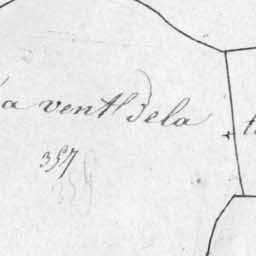 a vent dela
357
354